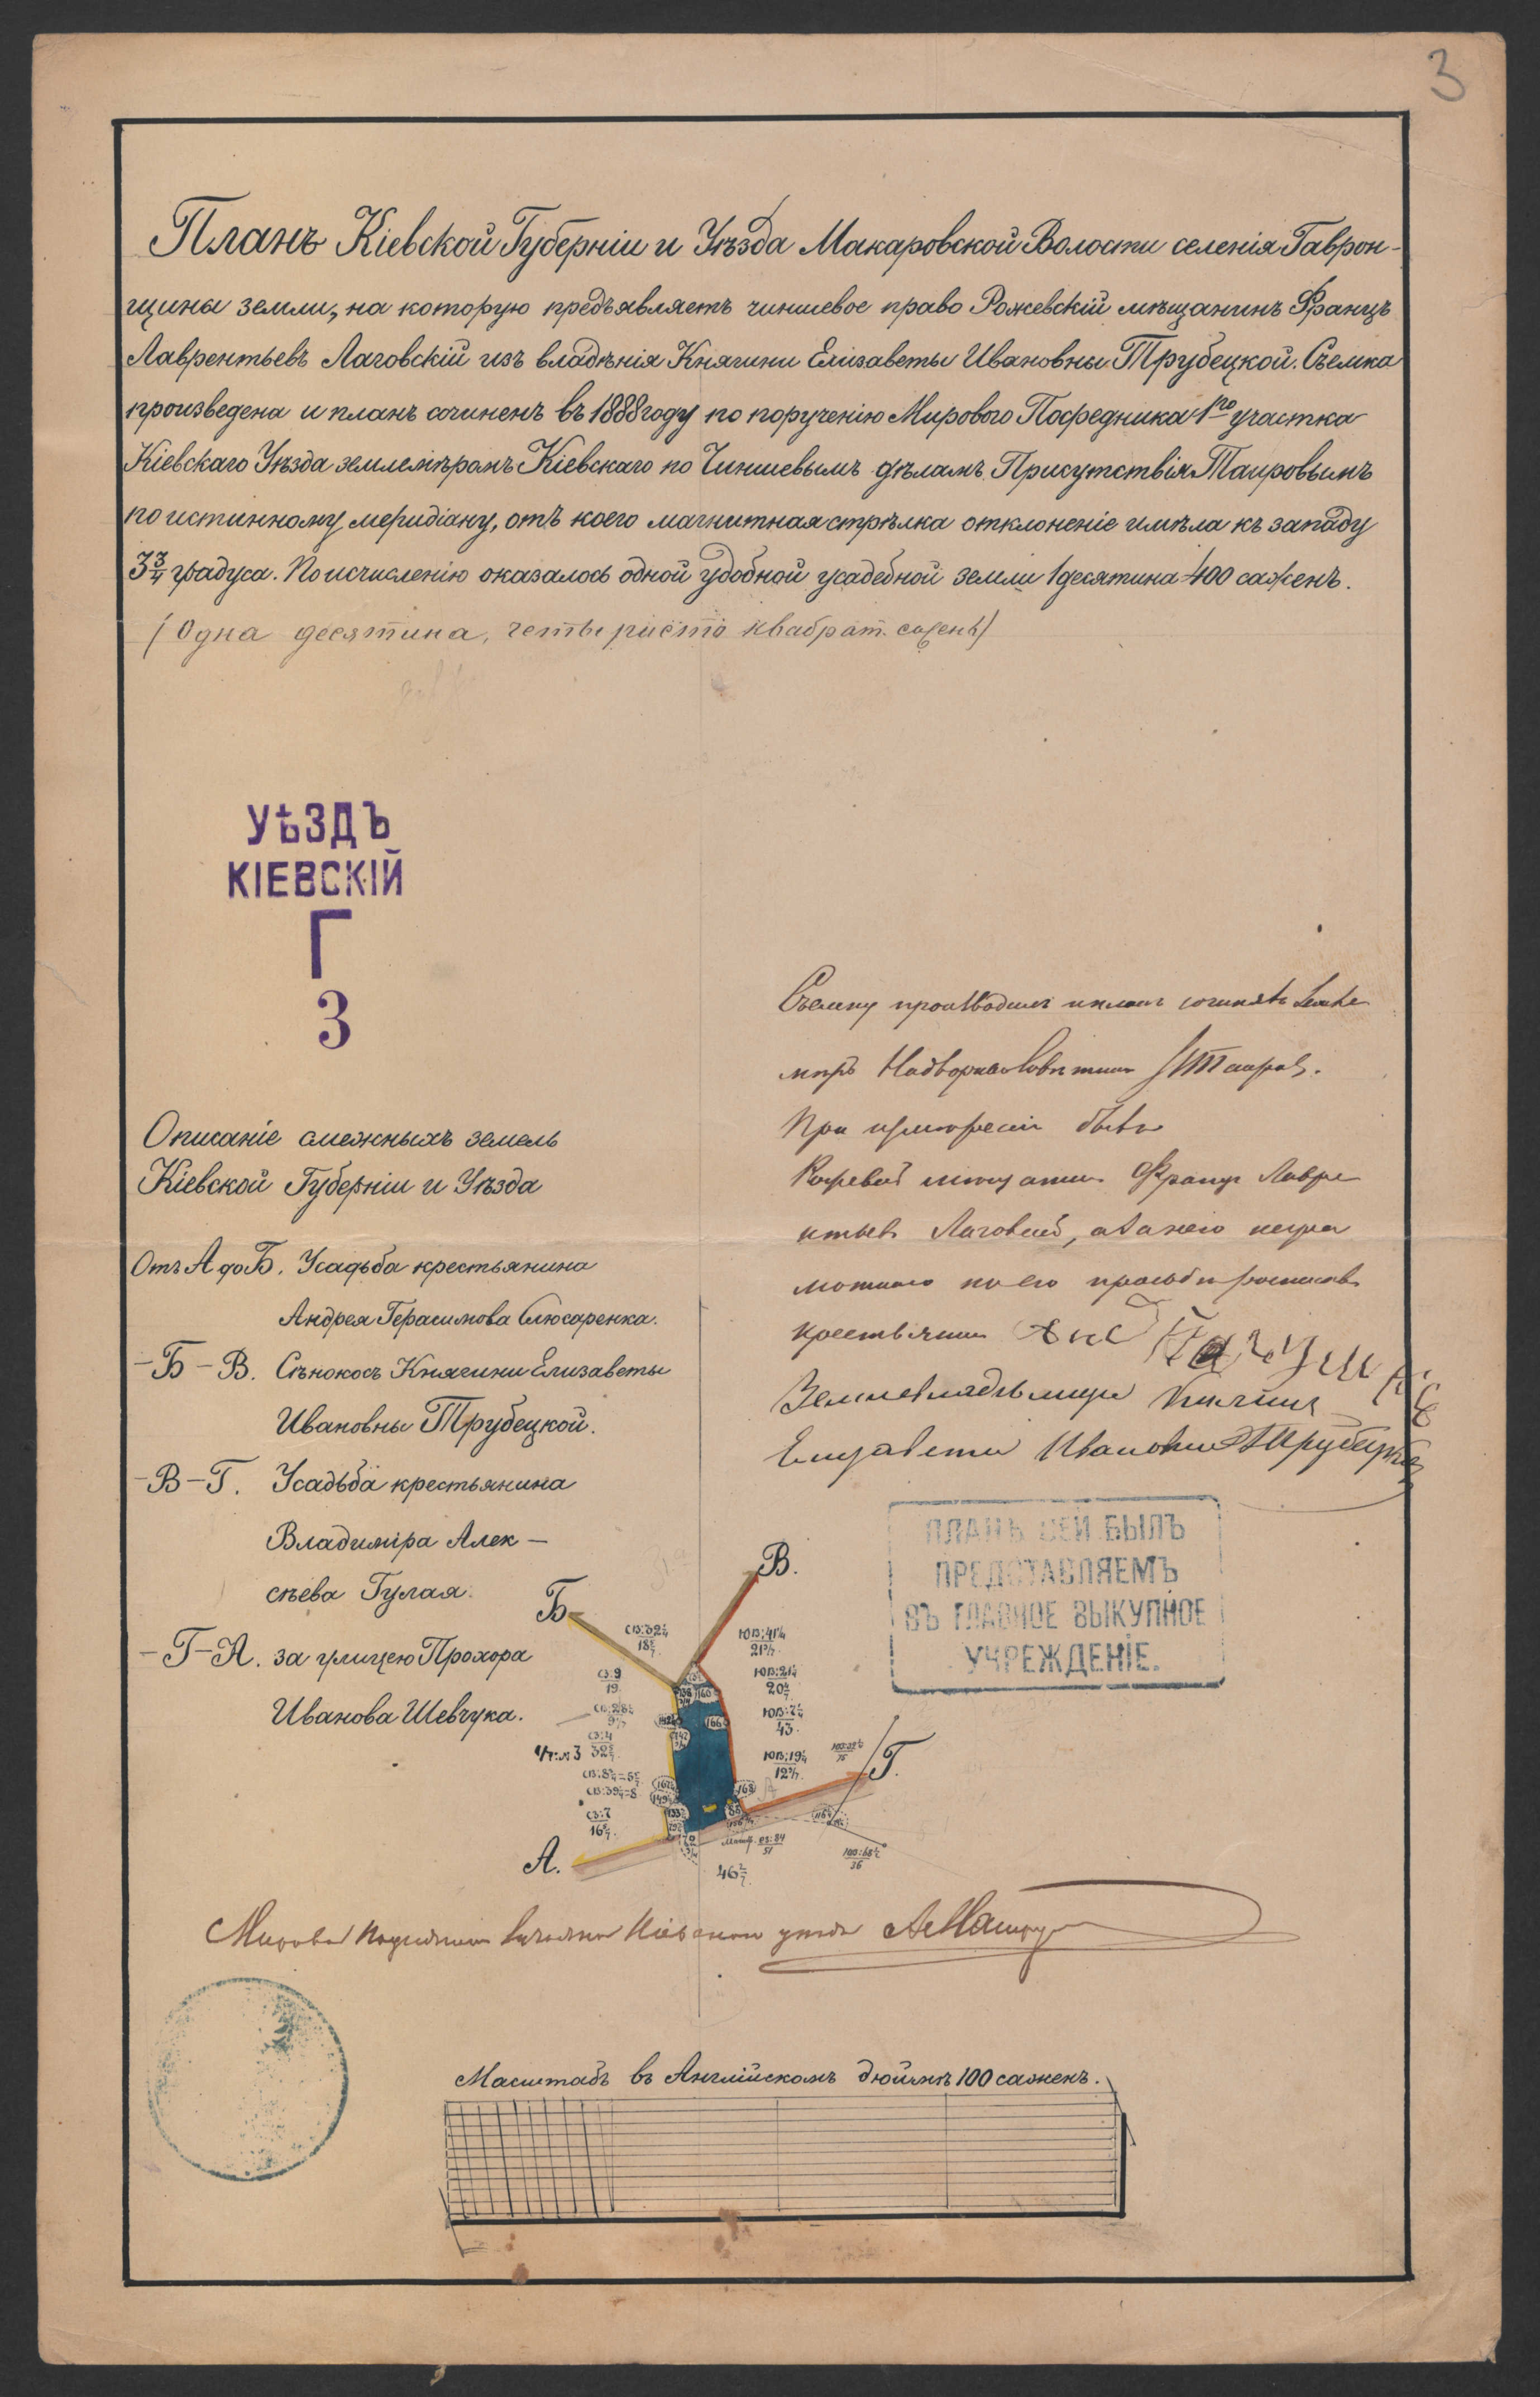 3
Планъ Кіевской Губерніи и Уѣзда Макаровской Волости селенія Гаврон-
щины земли, на которую предъявляетъ чиншевое право Рожевскій мѣщанинъ Францъ
Лаврентьевъ Лаговскій изъ владѣнія Княгини Елизаветы Ивановны Трубецкой. Съемка
произведена и планъ сочиненъ въ 1888 году по порученію Мирового Посредника 1го участка
Кіевскаго Уѣзда землемѣромъ Кіевскаго по Чиншевымъ дѣламъ Присутствія Таировымъ
по истинному меридіану, отъ коего магнитная стрѣлка отклоненіе имѣла къ западу
3 3/4 градуса. По исчисленію оказалось одной удобной усадебной земли 1 десятина 400 саженъ.
(Одна десятина, четыриста квадрат. сажень)
УѢЗДЪ
КІЕВСКІЙ
Г
3
Описаніе смежныхъ земель
Кіевской Губерніи и Уѣзда
Отъ А до Б. Усадьба крестьянина
Андрея Герасимова Слюсаренка.
-Б-В. Сѣнокосъ Княгини Елизаветы
Ивановны Трубецкой.
-В-Г. Усадьба крестьянина
Владиміра Алек-
сѣева Гулая.
-Г-А. за улицею Прохора
Иванова Шевчука.
Съемку производилъ и планъ сочинялъ Земле
мѣръ Надворный Совѣтникъ Таировъ.
При измѣреніи былъ
мѣщанинъ Францъ Лавре
нтьевъ Лаговскій, а за него негра
мотнаго по его просьбѣ росписался
крестьянинъ
Землевладѣлица Княгиня
Елизавета Ивановна Трубецкая
ПЛАНЪ СЕЙ БЫЛЪ
ПРЕДСТАВЛЯЕМЪ
ВЪ ГЛАВНОЕ ВЫКУПНОЕ
УЧРЕЖДЕНІЕ.
Б
В.
Г.
А.
СЗ:9
19
СЗ:4
СЗ:7
43
46 2/7
Мировой Посредникъ Кіевскаго уѣзда
Масштабъ въ Англійскомъ дюймѣ 100 саженъ.